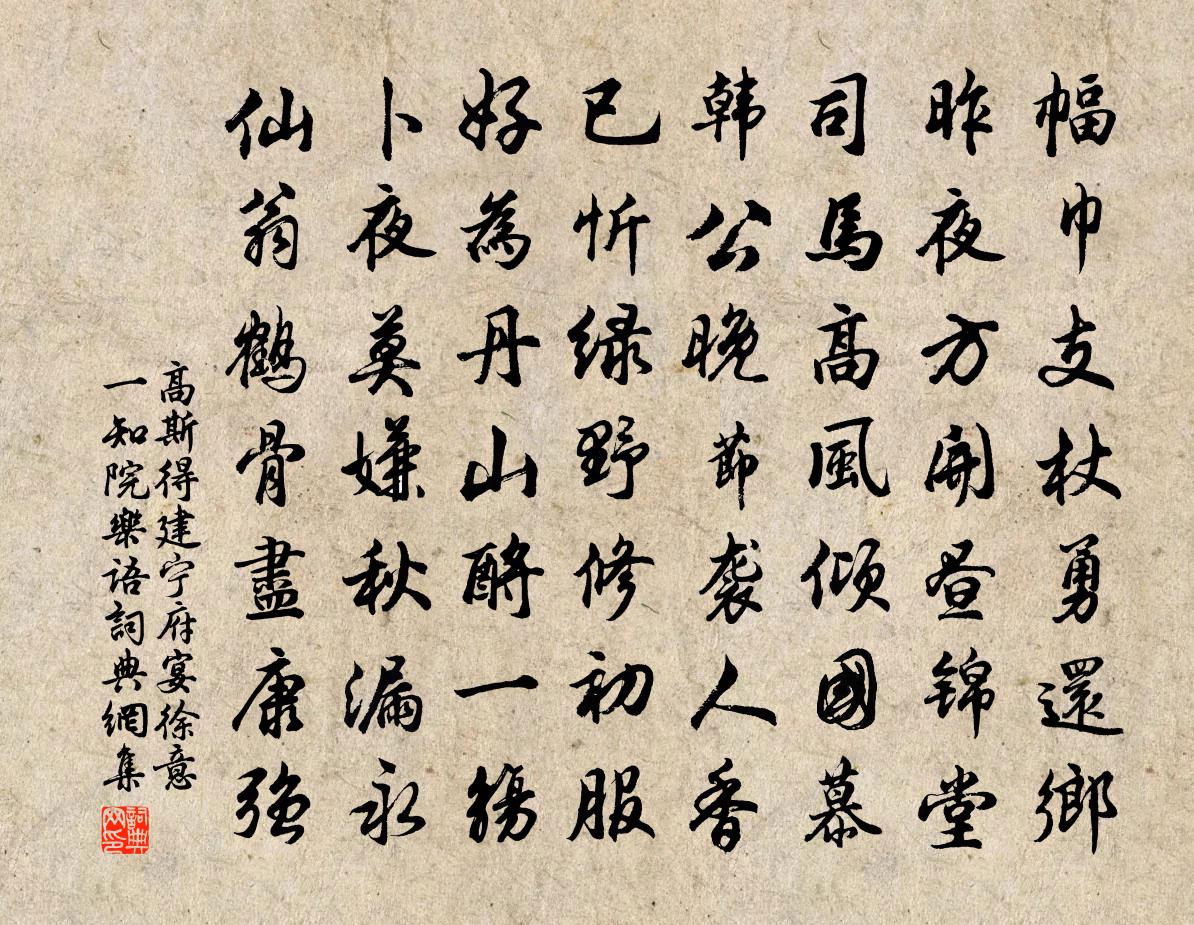 幅巾支杖勇還鄉
昨夜方開昼錦堂
司馬高風傾國慕
韩公晚節袭人香
已忻绿野修初服
好為丹山酹一觴
卜夜莫嫌秋漏永
仙翁鶴骨盡康強
高斯得建宁府宴徐意
一知院樂語詞典網集
詞典